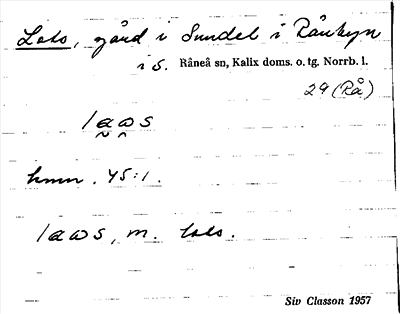 Lots, gård i Sundet i Rånbyn
i S. Råneå sn, Kalix doms. o. tg. Norrb. l.
29 (Rå)
laωs
hmn. 45:1.
laωs, m. lots.
Siv Classon 1957